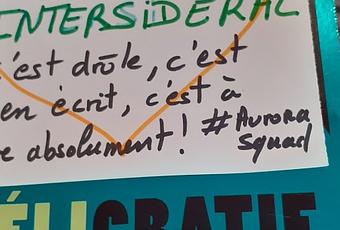 INTERSIDÉRAL
c'est drôle, c'est
en écrit, c'est à
absolument! #Aurora
Squad
ÉLIGRATIF